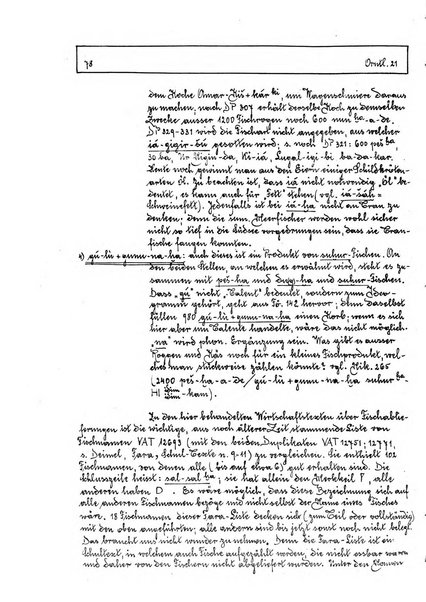 78 Orntl. 21
dem Koche Amar-Ki + kár ki, um Wagenschmiere daraus
zu machen; nach DP 307 erhält derselbe Koch zu demselben
Zwecke ausser 1200 Fischrogen noch 600 nun ḫa-a-de.
DP 329-331 wird die Fischart nicht angegeben, aus welcher
iá-gigir-šù gesotten wird; s. noch DP 321: 600 peš ḫa
30 ba, Ur Nigin-da, Ki-iá, Lugal-igi ba-da-kar.
Leute noch gewinnt man aus den Eiern einiger Schildkröten-
arten Öl. Zu beachten ist, dass iá nicht notwendig "Öl" be-
deutet, es kann auch für Fett stehen (vgl. iá-šáḫ =
Schweinefett). Jedenfalls ist bei iá-ḫa nicht an Tran zu
denken; denn die zum Meerfischer werden wohl sicher
nicht so tief in die Südsee vorgedrungen sein, dass sie Tran-
fische fangen konnten.
s) gú-li + gunu-na-ḫa: auch dieses ist ein Produkt von suḫur-Fischen. An
den beiden Stellen, an welchen es erwähnt wird, steht es zu-
sammen mit peš-ḫa und suḫur-Fischen.
Dass "gú" nicht "Talent" bedeutet, sondern zum Ideo-
gramm gehört, geht aus Fö. 142 hervor; denn daselbst
füllen 980 gú-li + gunu-na-ḫa einen Korb; wenn es sich
hier aber um Talente handelte, wäre das nicht möglich.
"na" wird phon. Ergänzung sein. Was gibt es ausser
Roggen und Käs noch für ein kleines Fischprodukt, wel-
ches man stückweise zählen könnte? vgl. Nik. 265
(2400 peš-ḫa-a-de / gú-li + gunu-na-ḫa suḫur ḫa
Zu den hier behandelten Wirtschaftstexten über Fischablie-
ferungen ist die wichtige, aus noch älterer Zeit stammende Liste von
Fischnamen VAT 12693 (mit den beiden Duplikaten VAT 12751; 12771,
s. Deimel, Fara, Schul-Texte n. 9-11) zu vergleichen. Sie enthielt 102
Fischnamen, von denen alle (bis auf etwa 6) gut erhalten sind. Die
Schlusszeile heisst: sal-sal ḫa; sie hat allein den Merkkeil P, alle
anderen haben D. Es wäre möglich, dass diese Bezeichnung sich auf
alle anderen Fischnamen bezöge und nicht selbst der Name eines Fisches
wäre. 18 Fischnamen dieser Fara-Liste decken sich (zum Teil oder vollständig)
mit den oben angeführten; alle andern sind bis jetzt sonst noch nicht belegt.
Das braucht uns nicht wunder zu nehmen. Denn die Fara-Liste ist ein
Schultext, in welchem auch Fische aufgezählt werden, die nicht essbar waren
und daher von den Fischern nicht abgeliefert wurden. Unter den Namen